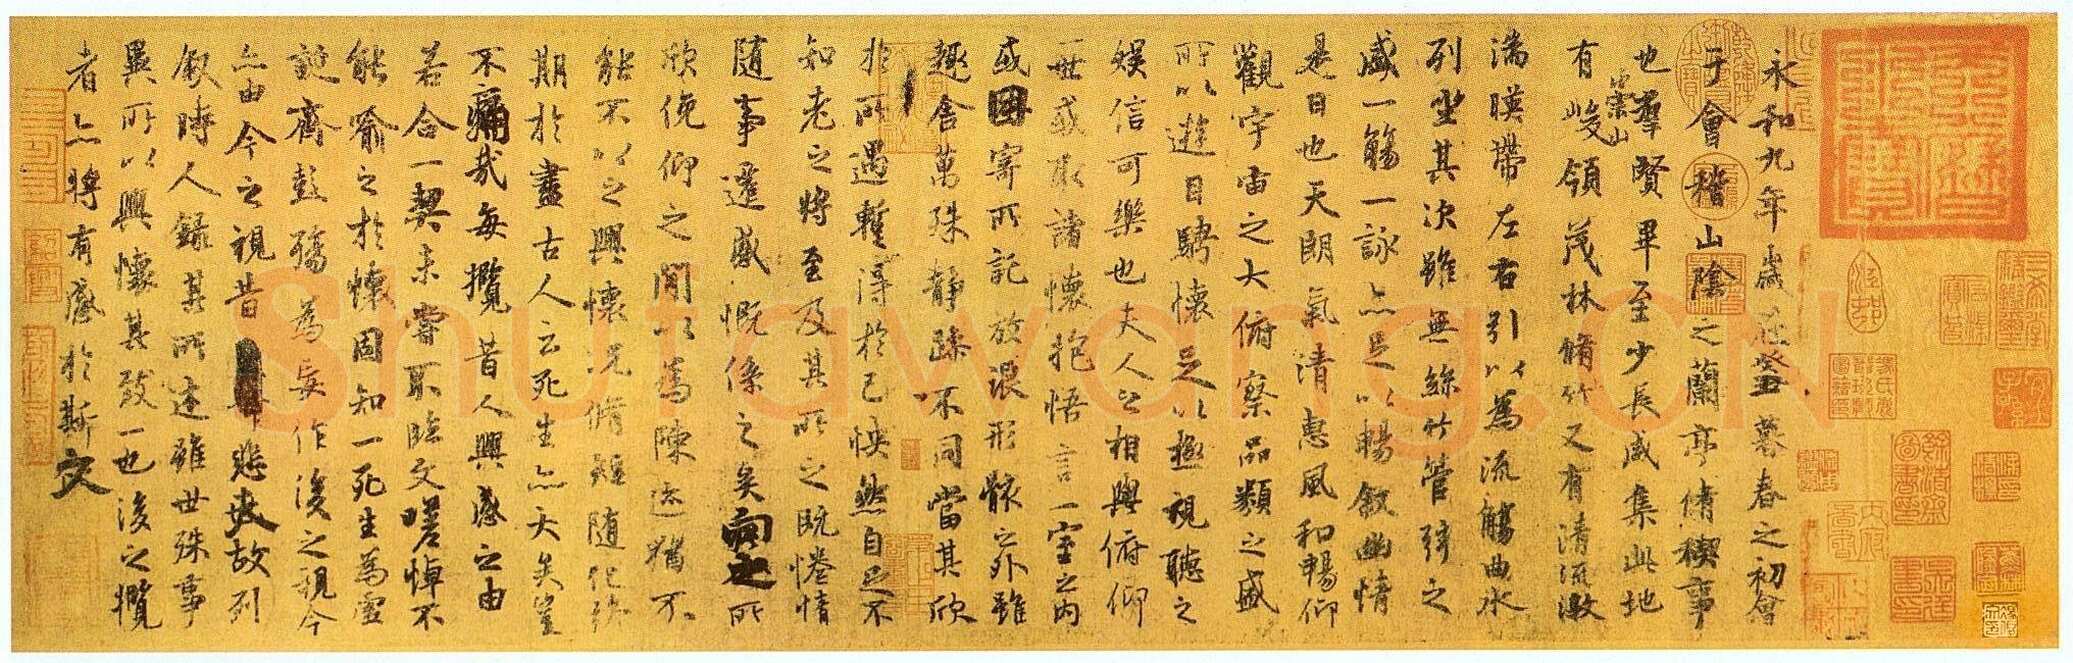 永和九年歲在癸丑暮春之初會
于會稽山陰之蘭亭脩稧事
也羣賢畢至少長咸集此地
有崇山峻領茂林脩竹又有清流激
湍暎帶左右引以為流觴曲水
列坐其次雖無絲竹管弦之
盛一觴一詠亦足以暢敘幽情
是日也天朗氣清惠風和暢仰
觀宇宙之大俯察品類之盛
所以遊目騁懷足以極視聽之
娛信可樂也夫人之相與俯仰
一世或取諸懷抱悟言一室之內
或因寄所託放浪形骸之外雖
趣舍萬殊靜躁不同當其欣
於所遇暫得於己怏然自足不
知老之將至及其所之既惓情
隨事遷感慨係之矣向之所
欣俛仰之閒以為陳迹猶不
能不以之興懷況脩短隨化終
期於盡古人云死生亦大矣豈
不痛哉每攬昔人興感之由
若合一契未嘗不臨文嗟悼不
能喻之於懷固知一死生為虛
誕齊彭殤為妄作後之視今
亦由今之視昔悲夫故列
敘時人錄其所述雖世殊事
異所以興懷其致一也後之攬
者亦將有感於斯文
Shufawang.CN